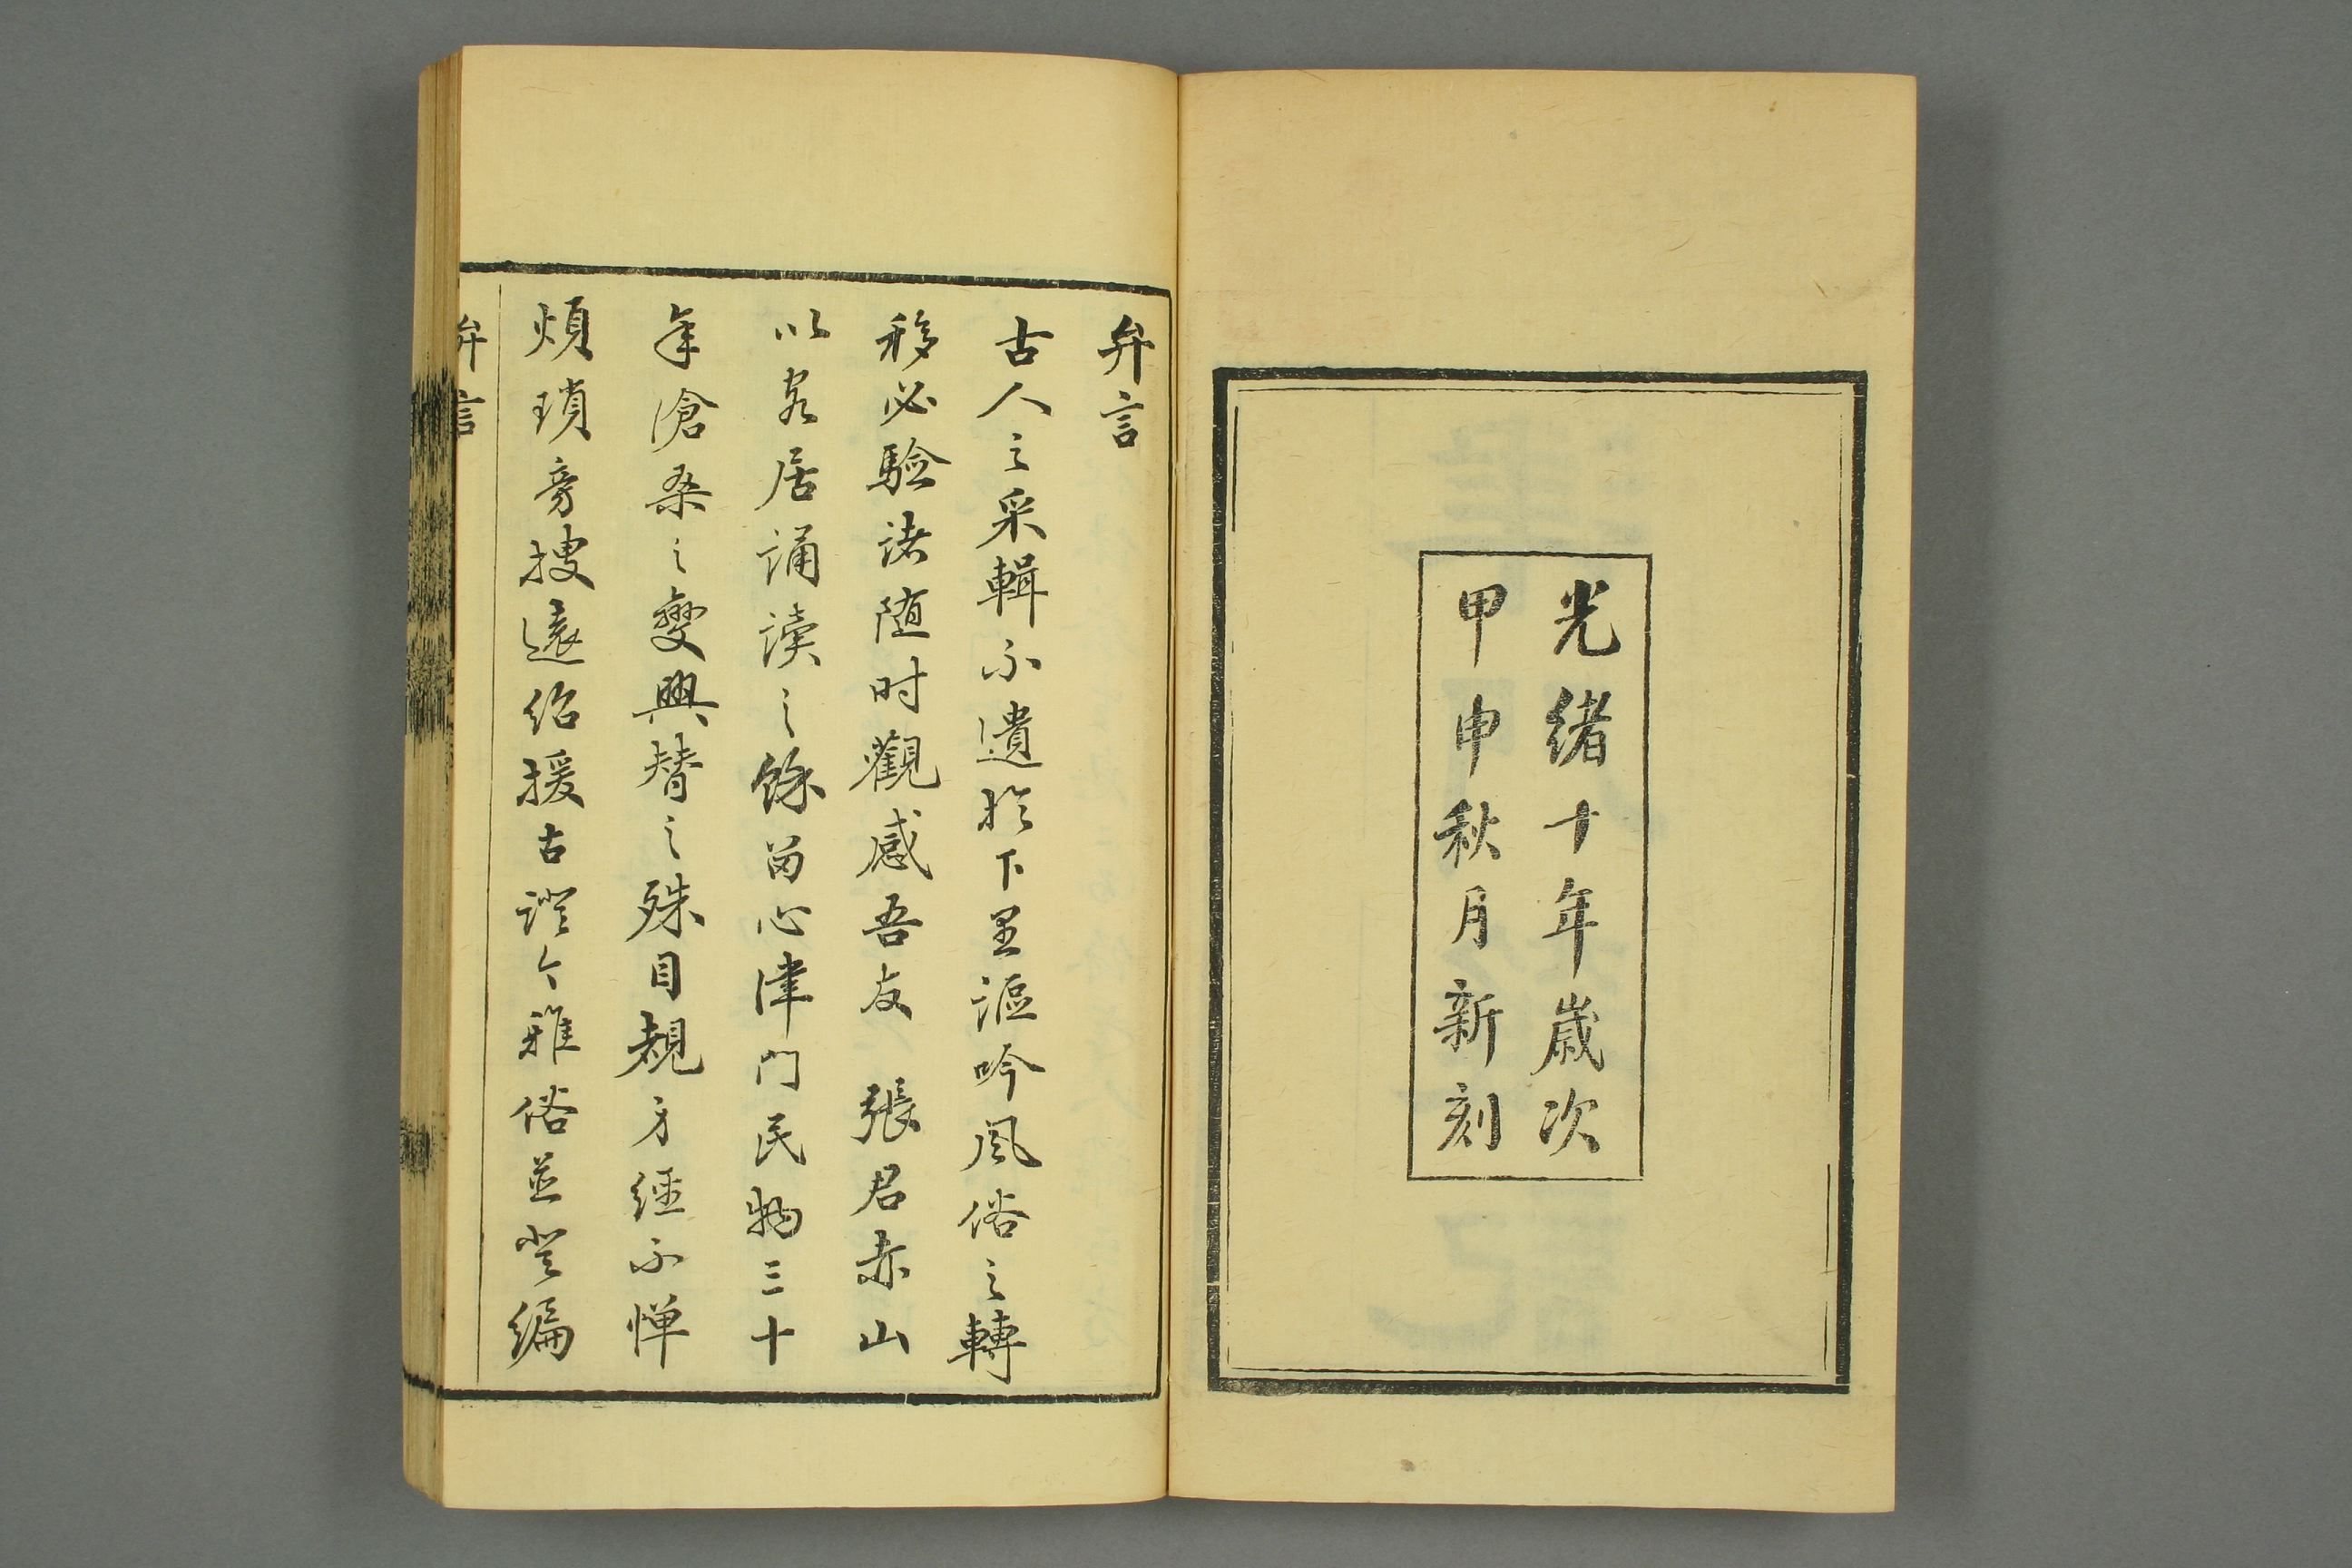 光緒十年歲次
甲申秋月新刻
弁言
古人之采輯不遺於下里謳吟風俗之轉
移必驗諸随时觀感吾友 張君赤山
以客居誦讀之餘留心津门民物三十
年滄桑之變興替之殊目覩身經不憚
煩瑣旁搜遠紹援古證今雅俗並登編
弁言